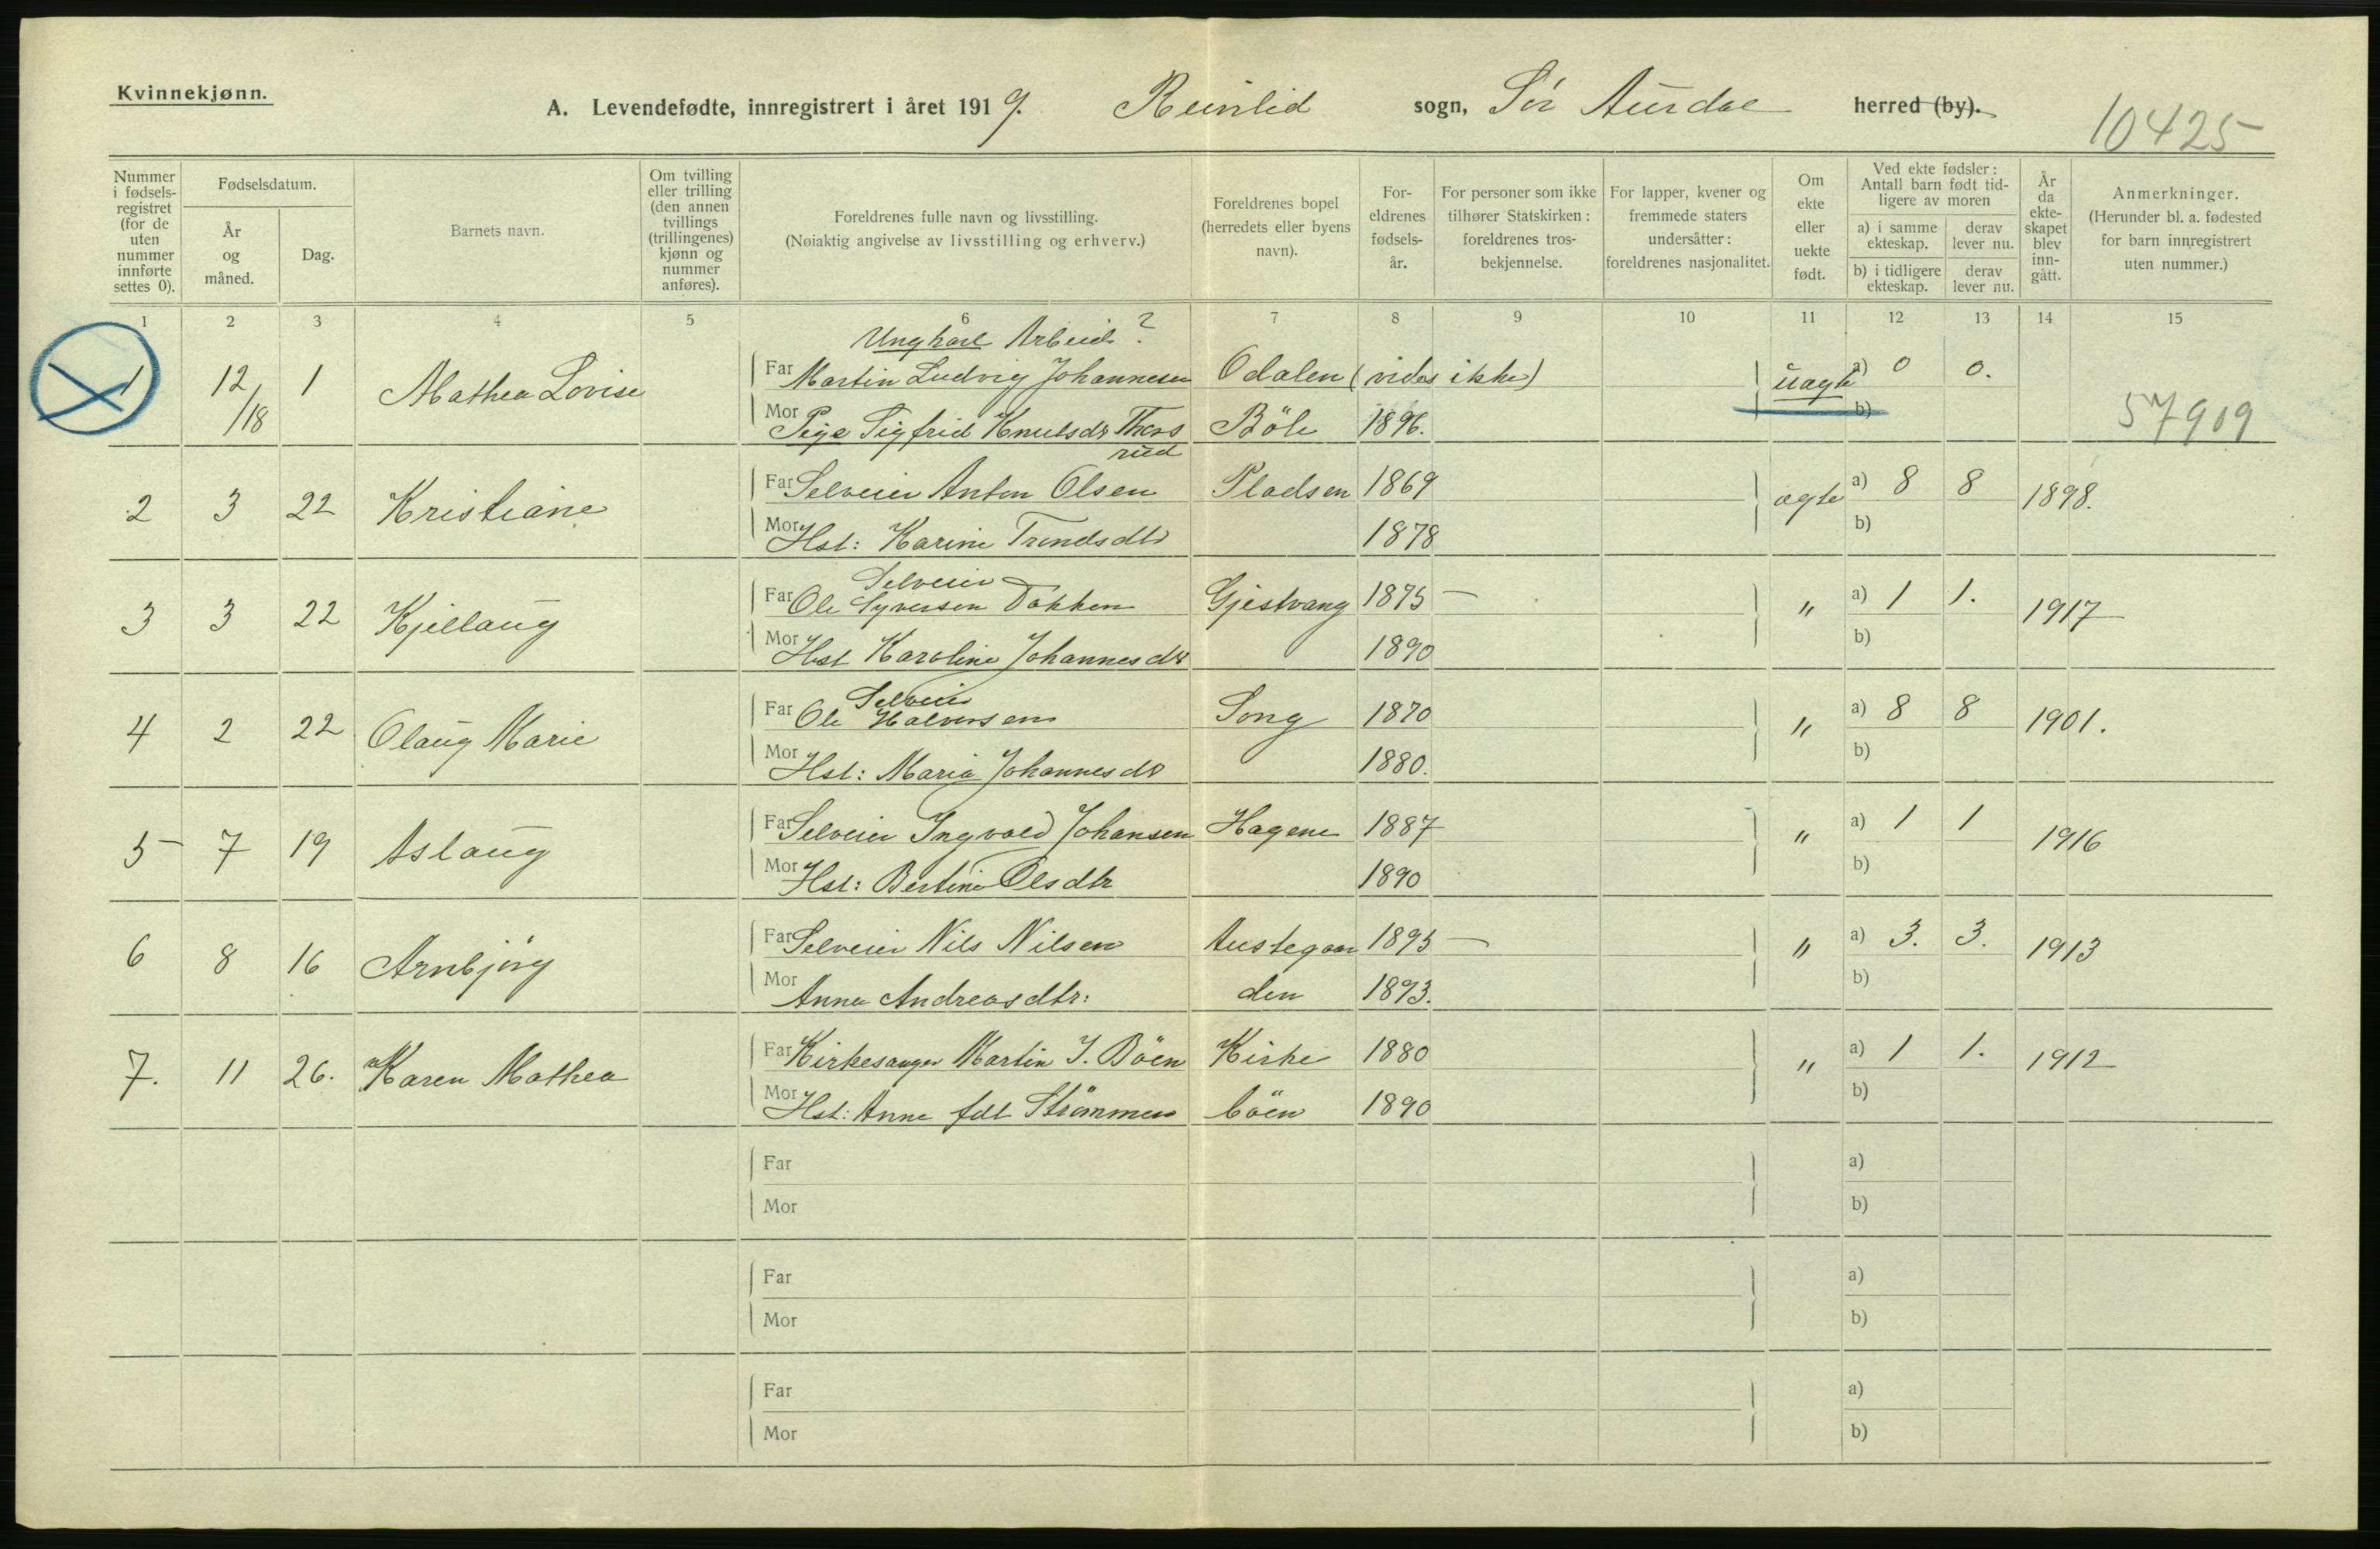 Kvinnekjønn.
A. Levendefødte, innregistrert i året 1919. Reinlid sogn, Sör Aurdal herred (by).
10425
Nummer i fødsels-registret (for de uten nummer innførte settes 0).
Fødselsdatum.
År og måned.
Dag.
Barnets navn.
Om tvilling eller trilling (den annen tvillings (trillingenes) kjønn og nummer anføres).
Foreldrenes fulle navn og livsstilling.
(Nøiaktig angivelse av livsstilling og erhverv.)
Foreldrenes bopel (herredets eller byens navn).
For-eldrenes fødsels-år.
For personer som ikke tilhører Statskirken: foreldrenes tros-bekjennelse.
For lapper, kvener og fremmede staters undersåtter: foreldrenes nasjonalitet.
Om ekte eller uekte født.
Ved ekte fødsler: Antall barn født tid-ligere av moren
a) i samme ekteskap.
derav lever nu.
b) i tidligere ekteskap.
derav lever nu.
År da ekte-skapet blev inn-gått.
Anmerkninger.
(Herunder bl. a. fødested for barn innregistrert uten nummer.)
1 2 3 4 5 6 7 8 9 10 11 12 13 14 15
Ungkarl Arbeid ?
1 12/18 1 Mathea Lovise Far Martin Ludvig Johannesen Odalen (vides ikke) uægte a) 0 0.
Mor Sigfrid Knutsdr Thors Böle 1896. b) 57909
rud
2 3 22 Kristiane Far Selveier Anton Olsen Pladsen 1869 ægte a) 8 8 1898.
Mor Hst: Karine Trondsdtr 1878 b)
Selveier
3 3 22 Kjellaug Far Ole Syversen Dokken Gjestvang 1875 " a) 1 1. 1917
Mor Hst Karoline Johannesdtr 1890 b)
Selveier
4 2 22 Olaug Marie Far Ole Halvorsen Song 1870 " a) 8 8 1901.
Mor Hst: Maria Johannesdtr 1880. b)
5 7 19 Aslaug Far Selveier Ingvald Johansen Hagene 1887 " a) 1 1 1916
Mor Hst: Bertine Olsdtr 1890 b)
6 8 16 Arnbjörg Far Selveier Nils Nilsen Austegaar 1895 " a) 3. 3. 1913
Mor Anna Andreasdtr: den 1893. b)
7. 11 26. Karen Mathea Far Kirkesanger Martin J. Böen Kirke 1880 " a) 1 1. 1912
Mor Hst: Anne fdt Strömmen böen 1890 b)
Far a)
Mor b)
Far a)
Mor b)
Far a)
Mor b)